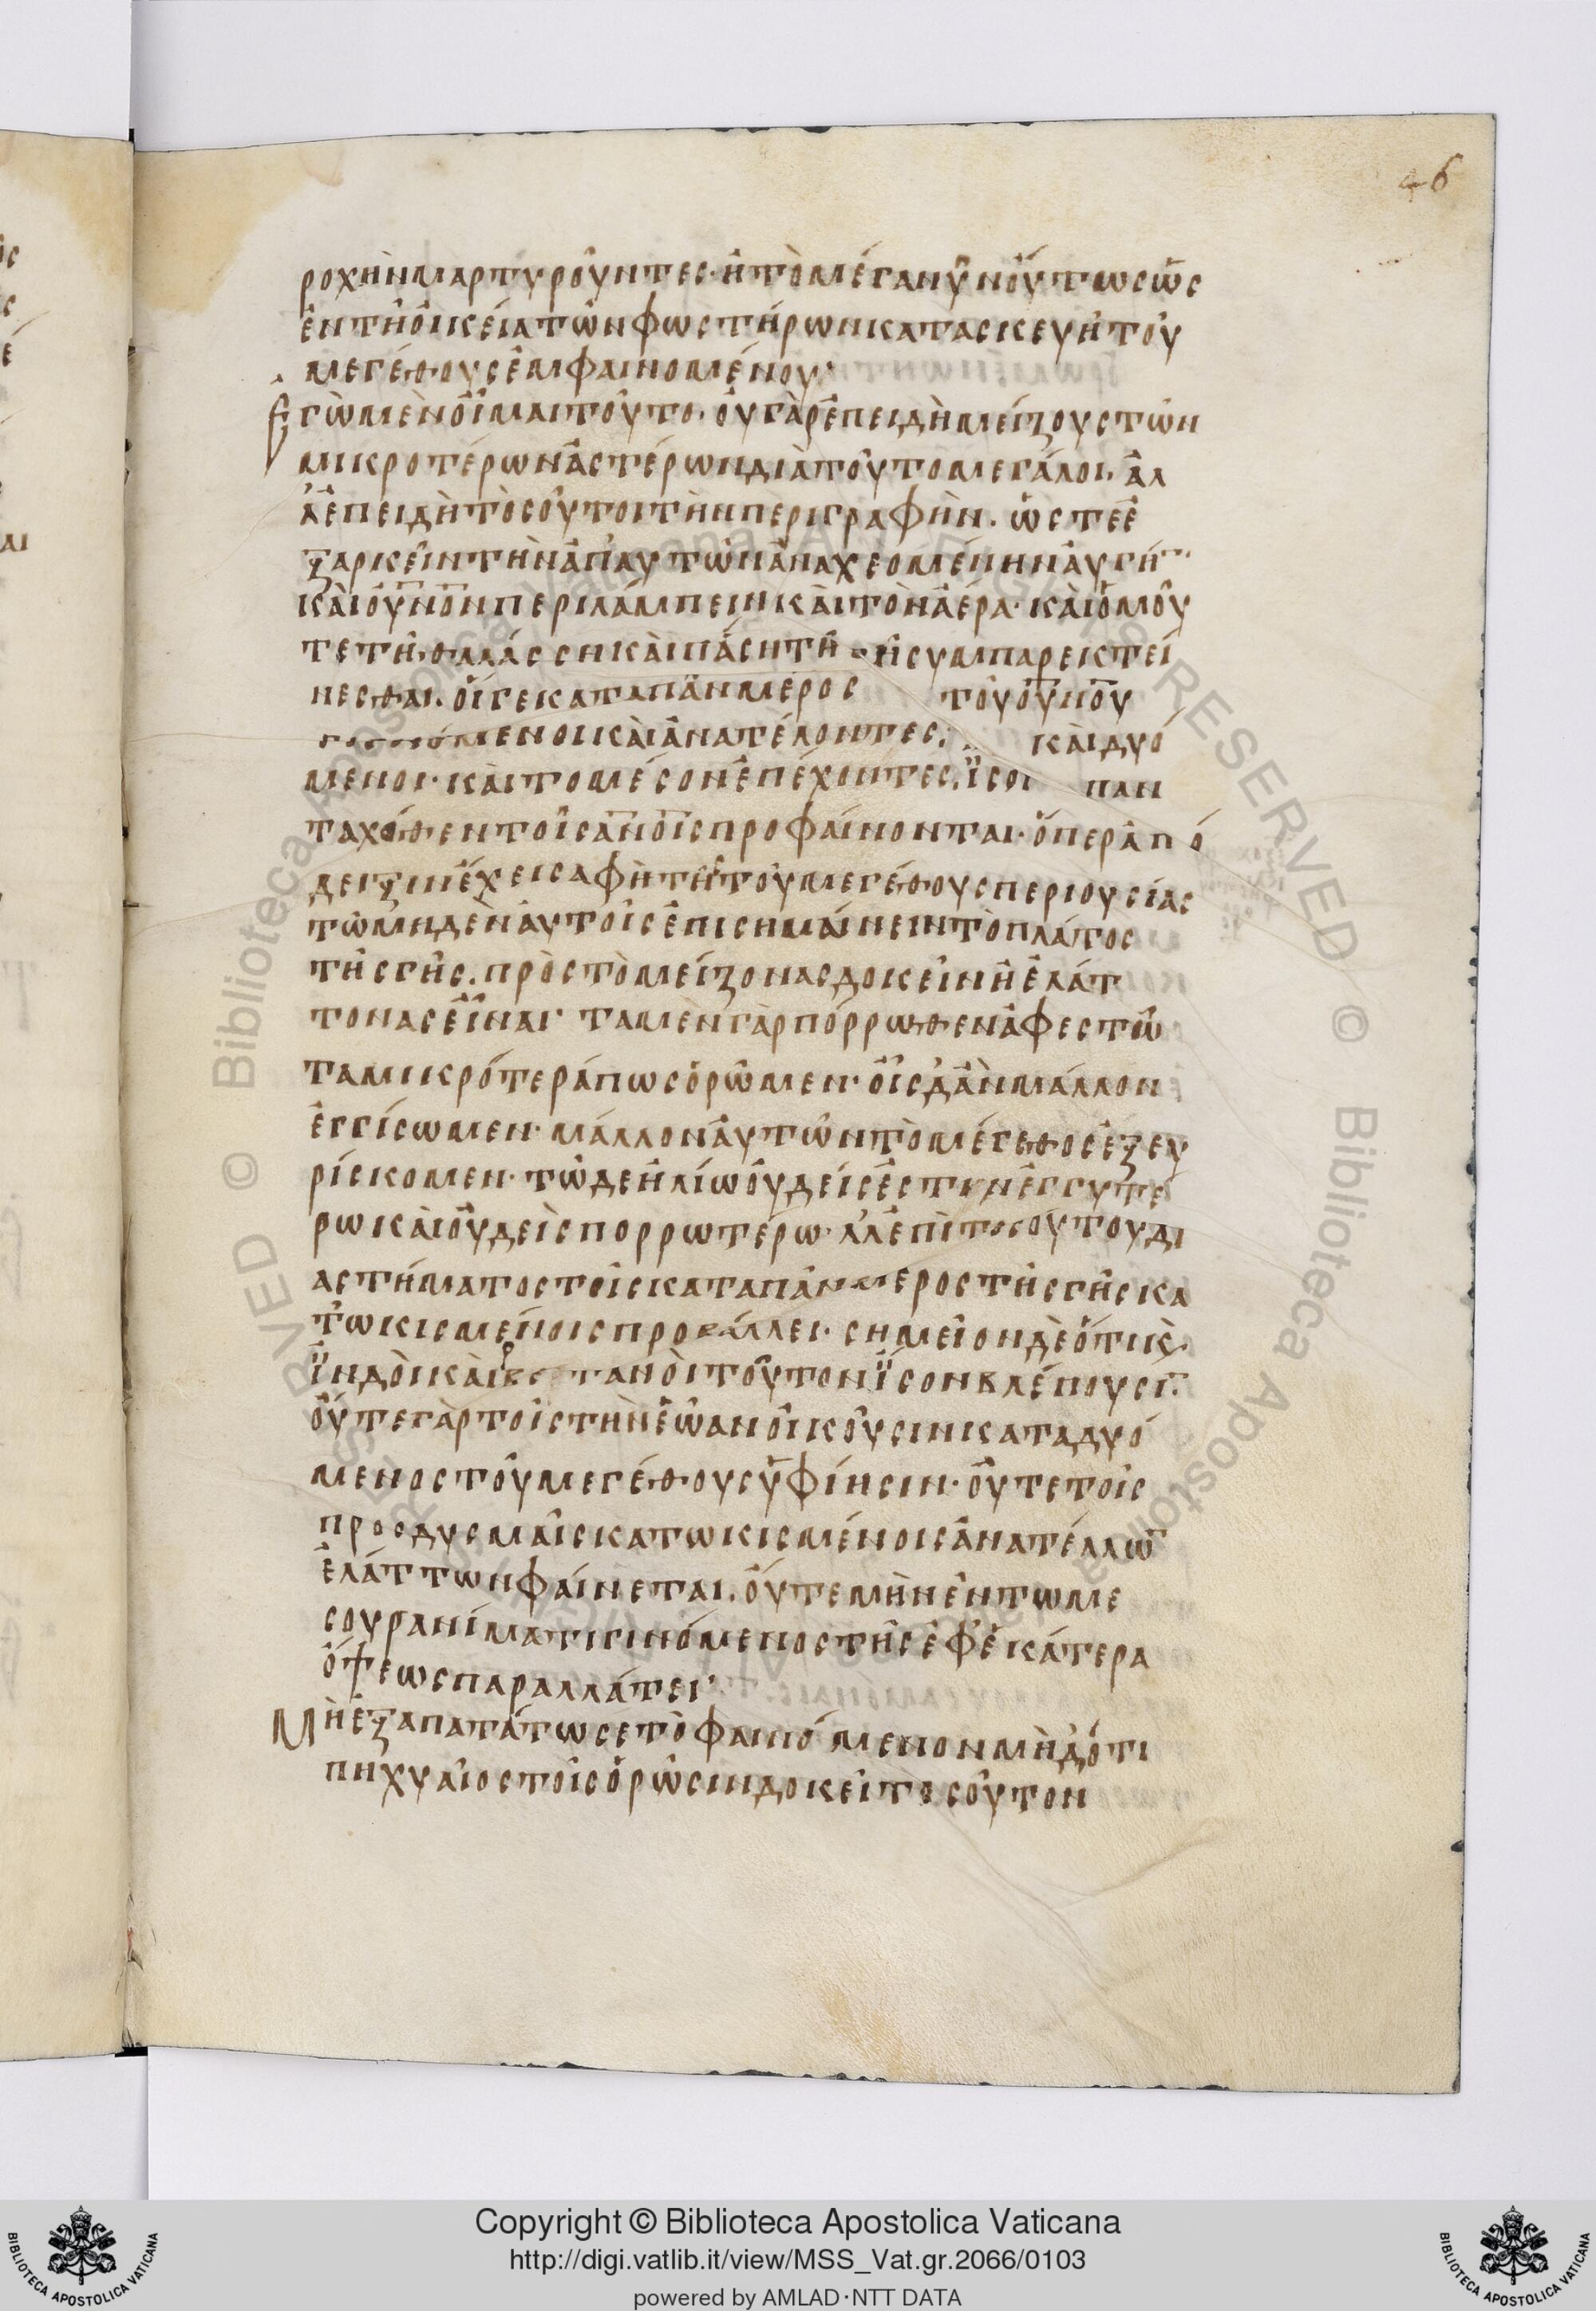 46
ροχὴν μαρτυροῦντες· ἢ τὸ μέγα νῦν οὕτως ὡς
ἐν τῆ οἰκεία τῶν φωστήρων κατασκευῆ τοῦ
μεγέθους ἐμφαινομένου·
Ἐγὼ μὲν οἶμαι τοῦτο· οὐ γὰρ ἐπειδὴ μείζους τῶν
μικροτέρων ἀστέρων διὰ τοῦτο μεγάλοι· ἀλ
λ' ἐπειδὴ τὸσοῦτοι τὴν περιγραφὴν· ὥστε ἐ
ξαρκεῖν τὴν ἀπ' αυτῶν ἀναχεομένην αὐγὴ̅
καὶ ου̅νο̅ν περιλάμπειν καὶ τὸν ἀέρα· καὶ ὁμοῦ
τε τῆ θαλάσση καὶ πάση τῆ γῆ συμπαρεκτεί
νεσθαι· οἵ γε κατα πᾶν μέρος τοῦ ου̅νου̅
μενοι καὶ ἀνατέλοντες· καὶ δυό
μενοι· καὶ το μέσον ἐπέχοντες· ἴσοι παν
ταχόθεν τοῖς α̅νο̅ις προφαίνονται· ὅπερ ἀπό
δειξιν ἔχει σαφῆ τῆς τοῦ μεγέθους περιουσίας
τῶ μηδὲν αὐτοῖς ἐπισημαίνειν τὸ πλάτος
τῆς γῆς· πρὸς τὸ μείζονας δοκεῖν ἢ ἐλάτ
τονας εἶναι· τα μὲν γὰρ πόρρωθεν ἀφεστῶ
τα μικρότερά πως ὁρῶμεν· οἷς δ' ἂν μάλλον
ἐγγίσωμεν· μάλλον αὐτῶν τὸ μέγεθος ἐξευ
ρίσκομεν· τῶ δε ἡλίω οὐδείς ἐστιν ἐγγυτέ
ρω καὶ οὐδεὶς πορρωτέρω· ἀλλ' ἐπὶ τοσούτου δι
αστήματος τοῖς κατα πᾶν μέρος τῆς γῆς κα
τωκισμένοις προβάλλει· σημεῖον δὲ ὅτι κ̀
ϊνδὸι καὶ βρεττανὸι τοῦτον ἴσον βλέπουσι̅·
οὔτε γὰρ τοῖς τὴν ἑώαν οἰκοῦσιν καταδυό
μενος τοῦ μεγέθους ὑφίησιν· οὔτε τοῖς
προσ δυσμαῖς κατωκισμένοις ἀνατέλλω̅
ἐλάττων φαίνεται· οὔτε μὴν ἐν τω με
σουρανίματι γινόμενος τῆς ἐφ' ἑκάτερα
ὄψεως παραλλάτει·
Μὴ ἐξαπατάτω σε τὸ φαινόμενον μὴ δ' ὅτι
πηχυαῖος τοῖς ὁρῶσιν δοκεῖ τοσοῦτον
Copyright © Biblioteca Apostolica Vaticana
http://digi.vatlib.it/view/MSS_Vat.gr.2066/0103
powered by AMLAD·NTT DATA